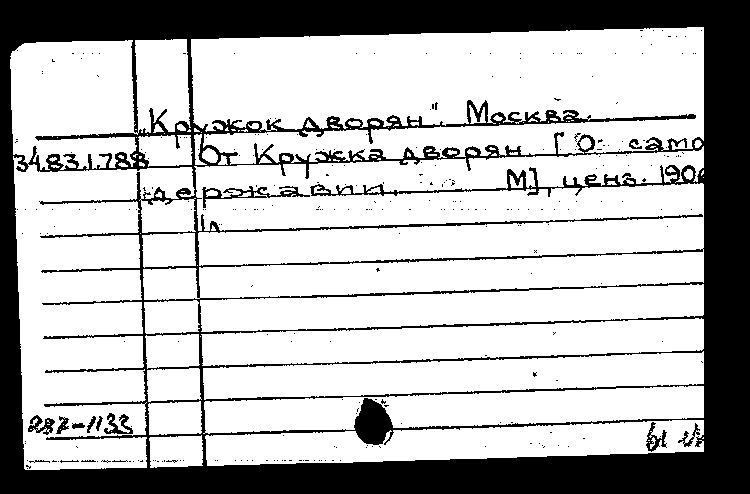 „Кружок дворян". Москва.
34.83.1.788 От Кружка дворян [О само
державии. М], ценз. 1906
1л
287-1133